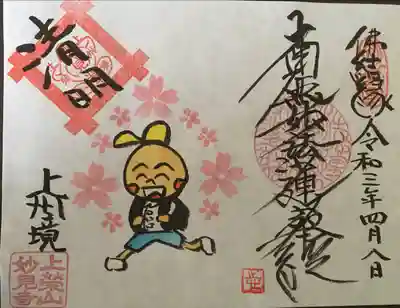 令和三年四月八日
南無妙法蓮華経
清明
上州境
上榮山
妙見寺